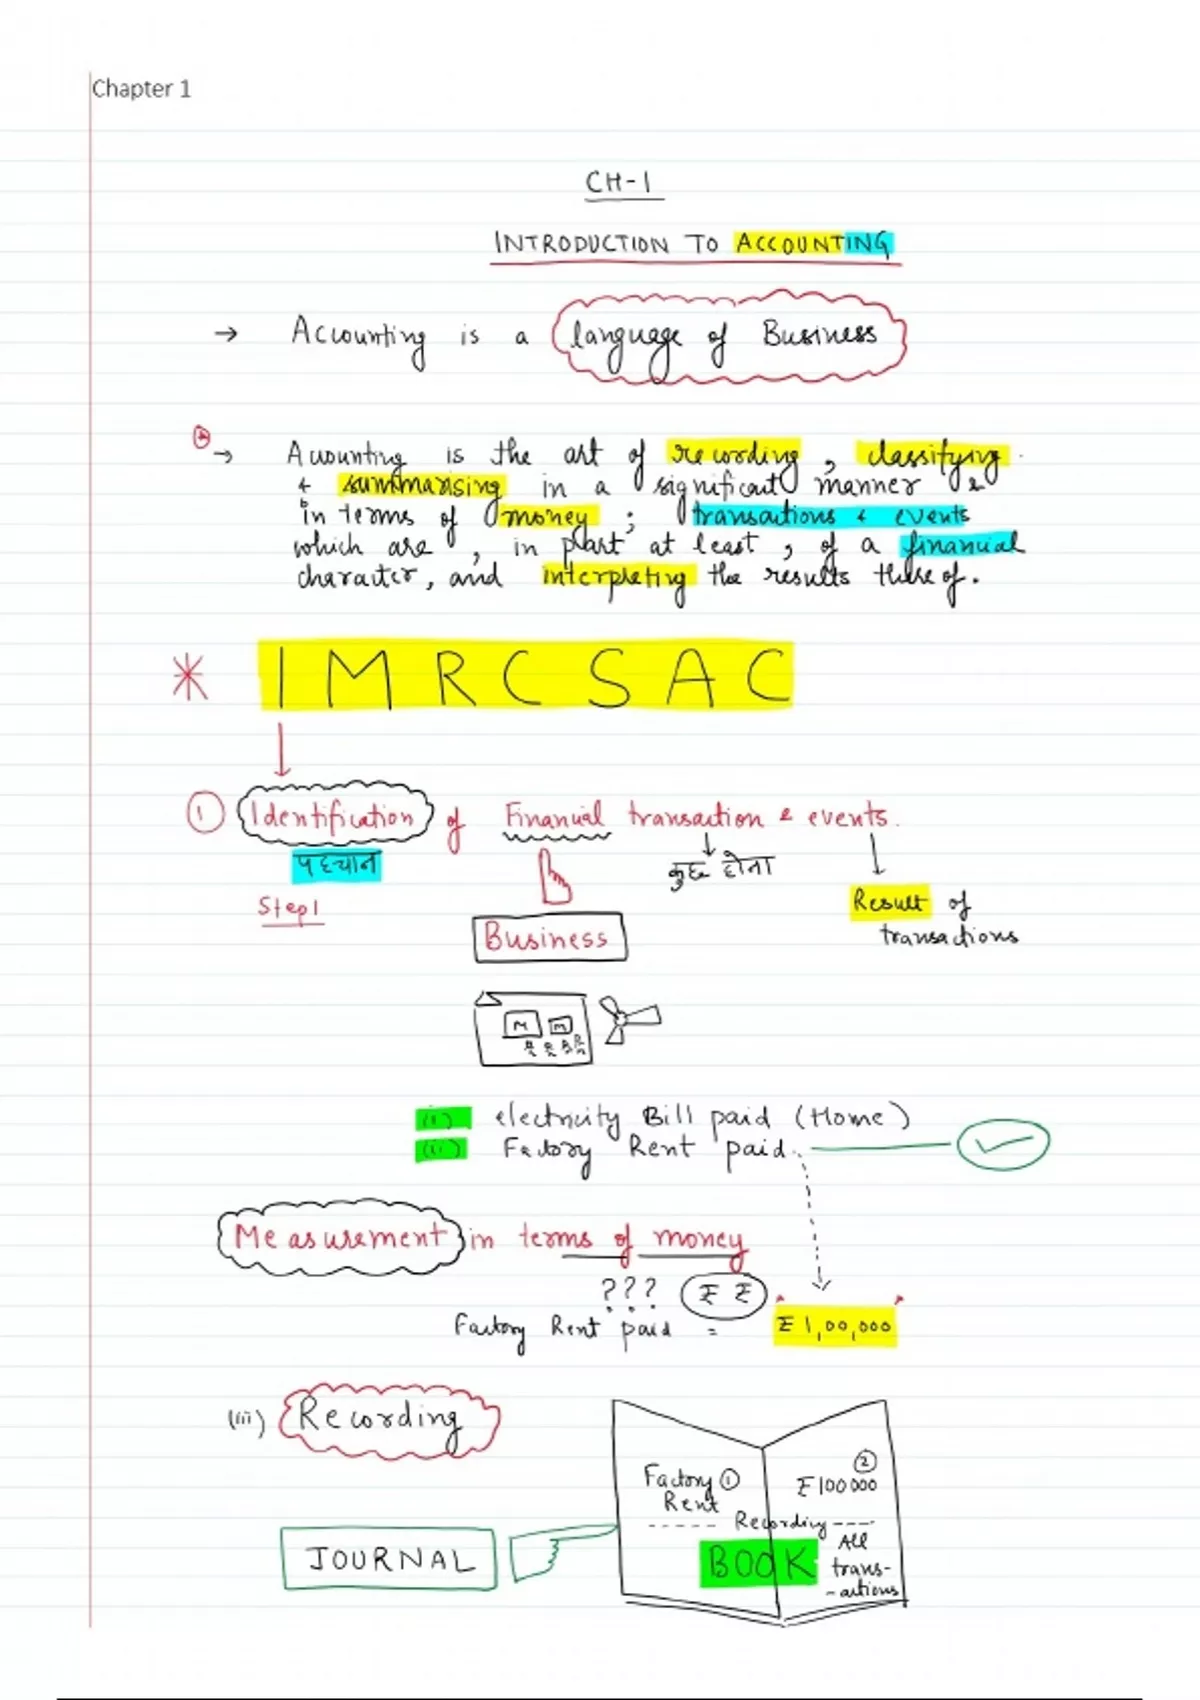 Chapter 1
CH-1
INTRODUCTION TO ACCOUNTING
→ Accounting is a language of Business
→ Accounting is the art of recording, classifying
& summarising in a significant manner &
in terms of money ; transactions & events
which are, in part at least, of a financial
character, and interpreting the results there of.
* I M R C S A C
① Identification of Financial transaction & events.
पहचान
कुछ होना
Step 1
Result of
transactions
Business
M M
(i) electricity Bill paid (Home)
(ii) Factory Rent paid.
Measurement in terms of money
??? ₹ ₹
Factory Rent paid = ₹ 1,00,000
(iii) Recording
Factory ① ②
Rent ₹ 100000
Recording
JOURNAL
BOOK
All
trans-
-actions